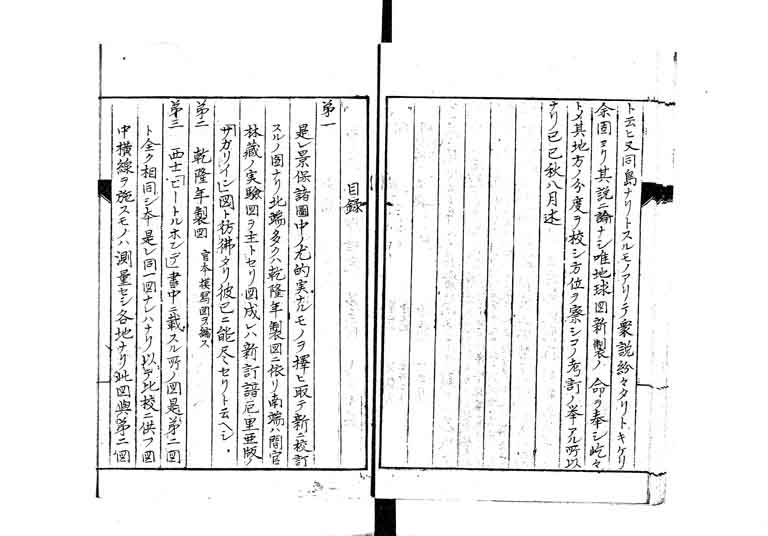 ト云ヒ又同島ナリトスルモノアリテ衆説紛々タリトキケリ
余固ヨリ其説ニ論ナシ唯地球図新製ノ 命ヲ奉シ屹々
トメ其地方ノ分度ヲ校シ方位ヲ察シコノ考訂ノ挙アル所以
ナリ己巳秋八月述
目録
第一
是レ景保諸圖中ノ尤的実ナルモノヲ擇ヒ取テ新ニ校訂
スルノ図ナリ北端多クハ乾隆年製図ニ依リ南端ハ間官
林蔵ノ実験図ヲ主トセリ図成レハ新訂諳厄里亜版ノ
「サカリイン」図ト彷彿タリ彼已ニ能尽セリト云ヘシ
第二 乾隆年製図 官本模写図ヲ縮ス
第三 西士「ヒートルホンデ」書中ニ載スル所ノ図是第二図
ト全ク相同シ本是レ同一図ナレハナリ以テ比校ニ供フ図
中横線ヲ施スモノハ測量セシ各地ナリ此図與第二図